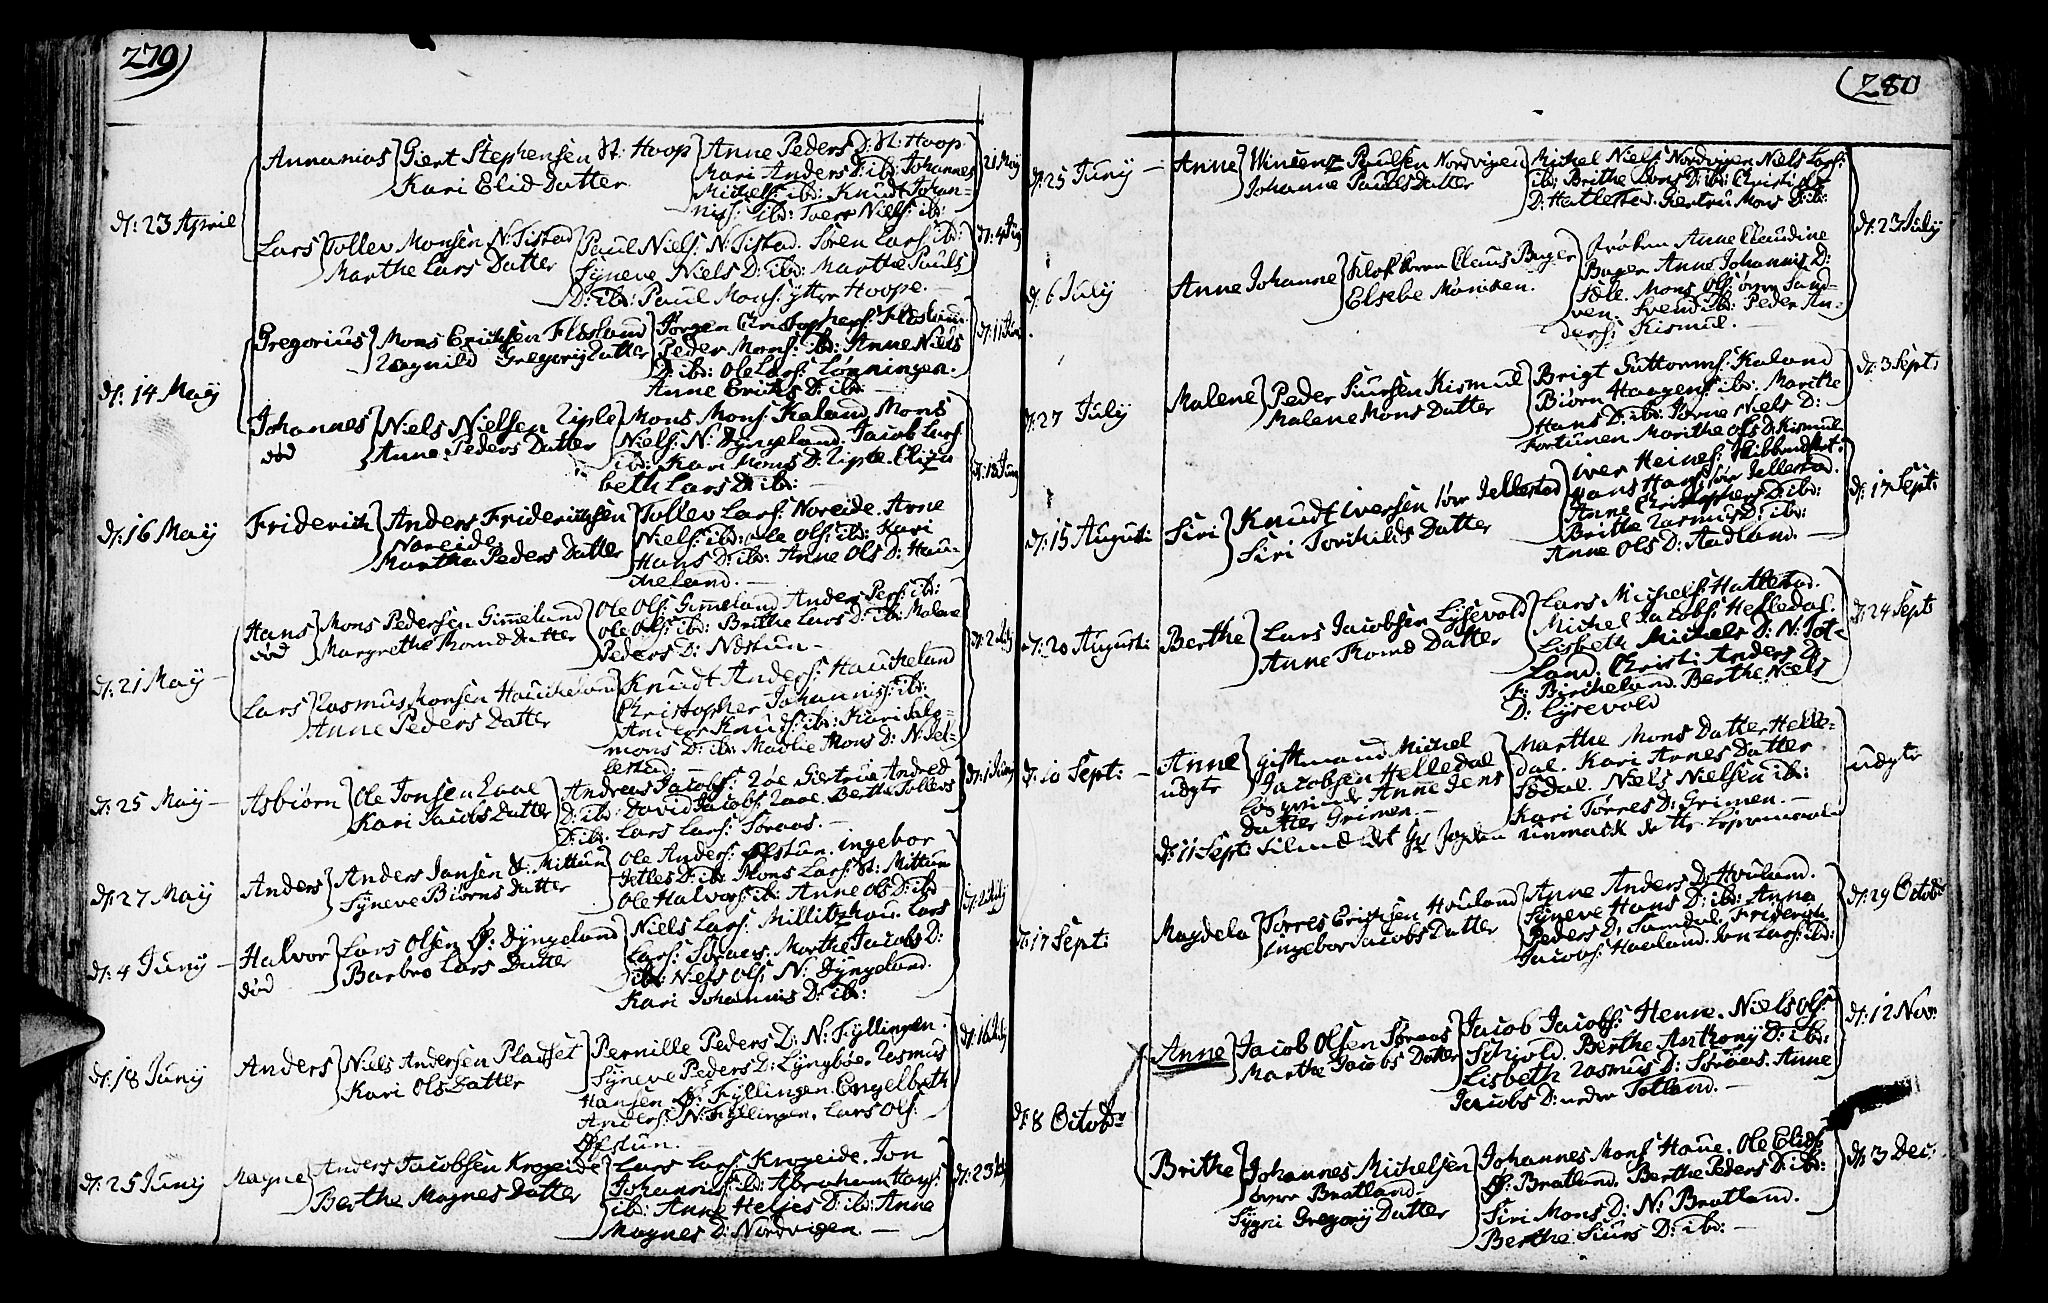 279)
d: 23 April
Annanias
Giert Stephensen St: Hoop
Kari Elid Datter
Anne Peders D: St: Hoop
Kari Anders D: ibd: Johannes
Michels: ibd: Knudt Johan-
niss: ibd: Niels: ibd:
d: 21 Maÿ
Lars
Tollev Monsen N: Tistad
Marthe Lars Datter
Paul Niels: N: Tistad. Søren Lars: ibd:
Sÿneve Niels D: ibd: Marthe Pauls
D: ibd: Paul Mons: ÿttre Hoope.
d: 14 Maÿ
Gregorius
Mons Erichsen Flæsland
Ragnild Gregorij Datter
Jørgen Christophers: Flæsland
Peder Mons: ibd: Anne Niels
D: ibd: Ole Lars: Lønningen.
Anne Erichs D: ibd:
Johannes
død
Niels Nielsen Riple
Anne Peders Datter
Mons Mons: Kaland Mons
Niels: N: Dÿngeland: Jacob Lars:
ibd: Kari Mons D: Riple. Eliza
beth Lars D: ibd:
d: 16 Maÿ
Friderich
Anders Friderichsen
Noreide
Martha Peders Datter
Tollev Lars: Noreide. Arne
Niels: ibd: Ole Ols: ibd: Kari
Hans D: ibd: Anne Ols D: Hau-
cheland.
d: 21 Maÿ
Hans
død
Mons Pedersen Gimeland
Margrethe Datter
Ole Ols: Gimeland Anders Pers: ibd:
Ole Ols: ibd: Brithe Lars D: ibd: Malene
Peders D: Næstun
Lars
Rasmus Monsen Haucheland
Anne Peders Datter
Knudt Anders: Haucheland
Christopher Johanniss: ibd:
Anders Knuds: ibd: Kari Salo-
mons D: ibd: Madlie Mons D: N: Jel-
lestad.
d: 25 Maÿ
Asbiørn
Ole Jonsen Raae
Kari Jacobs Datter
Andreas Jacobs: Røe Giertrue Andred
D: ibd: David Jacobs: Raae. Berthe Tollevs
D: ibd: Lars Lars: Søraas.
d: 27 Maÿ
Anders
Anders Jansen St: Mittun
Sÿneve Biørns Datter
Ole Anders: Øfstun. ingebor
Jetles D: ibd: Mons Lars: St: Mittun
Ole Halvors: ib: Anne Ols D: ibd:
d: 4 Junÿ
Halvor
død
Lars Olsen Ø: Dÿngeland
Barbro Lars Datter
Niels Lars: Millitzhou. Lars
Lars: Søraas. Marthe Jacobs D:
ibd: Niels Ols: N: Dÿngeland.
Kari Johannis D: ibd:
d: 18 Junÿ
Anders
Niels Andersen Pladset
Kari Ols Datter
Pernille Peders D: N: Fÿllingen.
Sÿneve Peders D: Lÿngbøe. Rasmus
Hansen Ø: Fÿllingen. Engelbreth
Anders: N: Fÿllingen. Lars Ols:
Øfstun.
d: 16 July
d: 25 Junÿ
Magne
Anders Jacobsen Krogeide
Berthe Magnes Datter
Lars Lars: Krogeide. Jon
Johannis: ibd: Abraham
ibd: Anne Heljes D: ibd: Anne
Magnes D: Nordvigen.
(280
d: 25 Junÿ
Anne
Wincent Poulsen Nordvigen
Johanne Pauls Datter
Michel Niels: Nordvigen Niels Lars:
ibd: Brithe Ivers D: ibd: Christi
D: Hatlestad. Giertru Mons D: ib:
d: 23 Julÿ
d: 6 Julÿ
Anne Johanne
Klokkeren Claus Bager
Elsebe Mariken.
frøken Anne Claudine
Bager Anne Johannis D:
Ols: øvre Sand-
ven. Svend ibd: Peder An-
ders: Kismul.
d: 27 Julÿ
Malene
Peder Siursen Kismul
Malene Mons Datter
Brigt Guttorms: Kaland
Biørn Haagens: ibd: Marithe
Hans D: ibd: Niels D:
Fortunen Marithe Ols D: Kismul
d: 3 Sept:
d: 15 Augusti
Siri
Knudt iversen søre Jellestad
Siri Torchilds Datter
iver Heines:
Hans Hans: søre Jellestad.
Anne Christophers D: ibd:
Brithe Rasmus D: ibd:
Anne Ols D: Aadland.
d: 17 Sept:
d: 20 Augusti
Berthe
Lars Jacobsen Lÿsevold
Anne Datter
Lars Michels: Hatlestad.
Michel Jacobs: Helledal.
Lisbeth Michels D: N: Tot-
land. Christi Anders D:
Bircheland. Berthe Niels
D: Lÿsevold
d: 24 Sept
d: 10 Sept:
Anne
udgte
giftmand Michel
Jacobsen Helledal
Løsqvinde Anne Jens
Datter Grimen
Marthe Mons Datter Helle-
dal. Kari Arnes Datter
Sædal. Niels Nielsen ib:
Kari Torres D: Grimen.
udgte
d: 11 Sept:
d: 17 Sept:
Magdela
Torres Erichsen Houland
Ingebor Jacobs Datter
Anne Anders D: Houland.
Sÿneve Hans D: ibd: Anna
Peders D: Samdal. Friderich
Jacobs: Houland. Jon Lars: ibd:
d: 29 Octobr
d: 8 Octobr
Anne
Jacob Olsen Søraas
Marthe Jacobs Datter
Jacob Jacobs: Henne. Niels Ols:
Schiold. Berthe Anthonÿ D: ibd:
Lisbeth Rasmus D: Søraas. Anne
Jacobs D: nedre Totland.
d: 12 Nov:
Brithe
Johannes Michelsen
øvre Bratland
Sÿgni Gregorÿ Datter
Johannes Mons: Haue. Ole Elids:
Ø: Bratland. Berthe Peders D: ibd:
Siri Mons D: N: Bratland.
Berthe Siurs D: ibd:
d: 3 Dec: